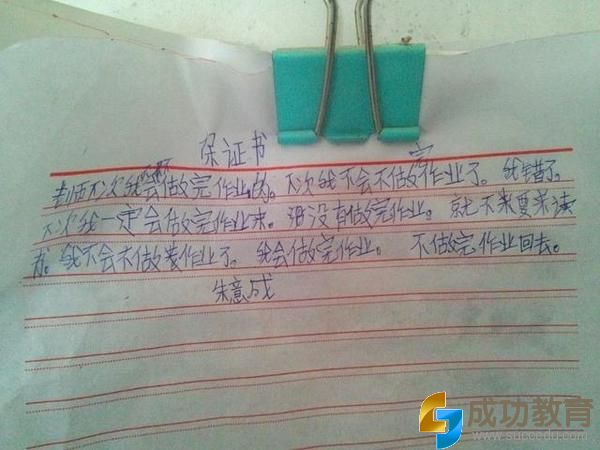 保证书
老师下次我会做完作业的。下次我不会不做完作业了。我错了。
下次我一定会做完作业来。没有做完作业。就不来要来读
书。我不会不做完作业了。我会做完作业。不做完作业回去。
朱意成
成功教育
www.succedu.com